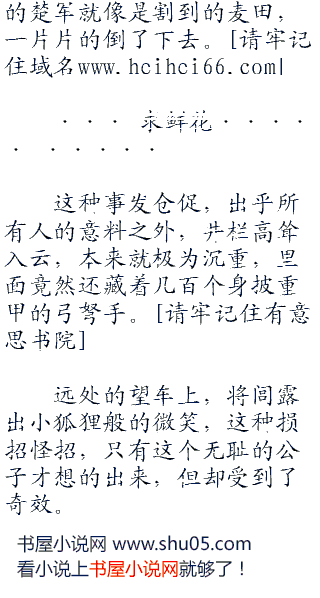 的楚军就像是割到的麦田，
一片片的倒了下去。[请牢记
住域名www.hcihci66.com|
· · · 求鲜花 · · · ·
· · · · · ·
这种事发仓促，出乎所
有人的意料之外，井栏高耸
入云，本来就极为沉重，里
面竟然还藏着几百个身披重
甲的弓弩手。[请牢记住有意
思书院]
远处的望车上，将闾露
出小狐狸般的微笑，这种损
招怪招，只有这个无耻的公
子才想的出来，但却受到了
奇效。
书屋小说网 www.shu05.com
看小说上书屋小说网就够了！